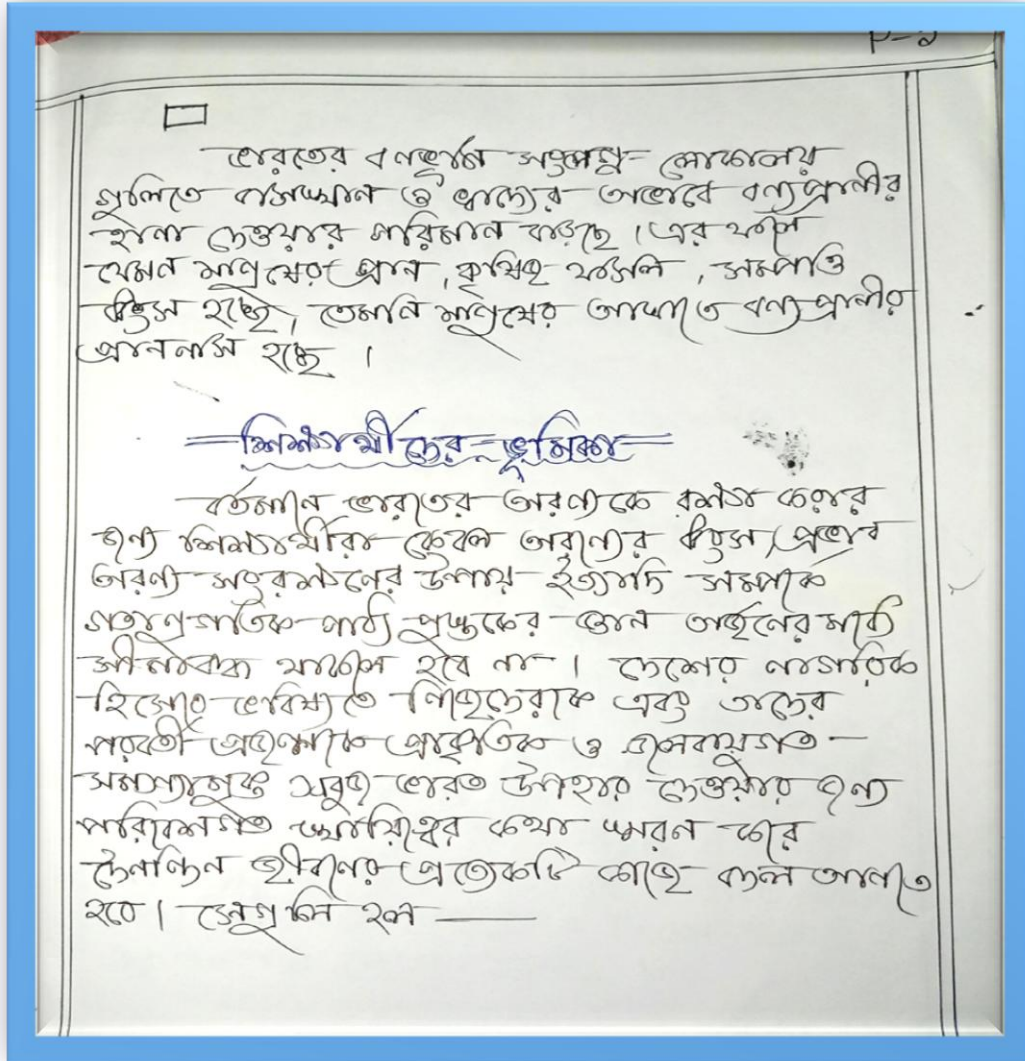 P-২
ভারতের বনভূমি সংলগ্ন লোকালয়
গুলিতে বাসস্থান ও খাদ্যের অভাবে বন্যপ্রানীর
হানা দেওয়ার পরিমান বাড়ছে। এর ফলে
যেমন মানুষের প্রান, কৃষিজ ফসল, সম্পত্তি
ধ্বংস হচ্ছে, তেমনি মানুষের আঘাতে বন্যপ্রানীর
প্রাননাস হচ্ছে।
শিক্ষার্থীদের ভূমিকা
বর্তমানে ভারতের অরণ্যকে রক্ষা করার
জন্য শিক্ষার্থীরা কেবল অরণ্যের ধ্বংস, প্রভাব
অরণ্য সংরক্ষনের উপায় ইত্যাদি সম্পর্কে
গতানুগতিক পাঠ্য পুস্তকের জ্ঞান অর্জনের মধ্যে
সীমাবদ্ধ থাকলে হবে না। দেশের নাগরিক
হিসেবে ভবিষ্যতে নিজেদেরকে এবং তাদের
পরবর্তী প্রজন্মকে প্রাকৃতিক ও জলবায়ুগত
সমস্যামুক্ত সবুজ ভারত উপহার দেওয়ার জন্য
পরিবেশগত স্থায়িত্বের কথা স্মরন করে
দৈনন্দিন জীবনের প্রত্যেকটি কাজে বদল আনতে
হবে। সেগুলি হল —